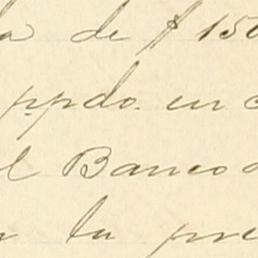 de $ 150
ppdo. en
el Banco
la pre